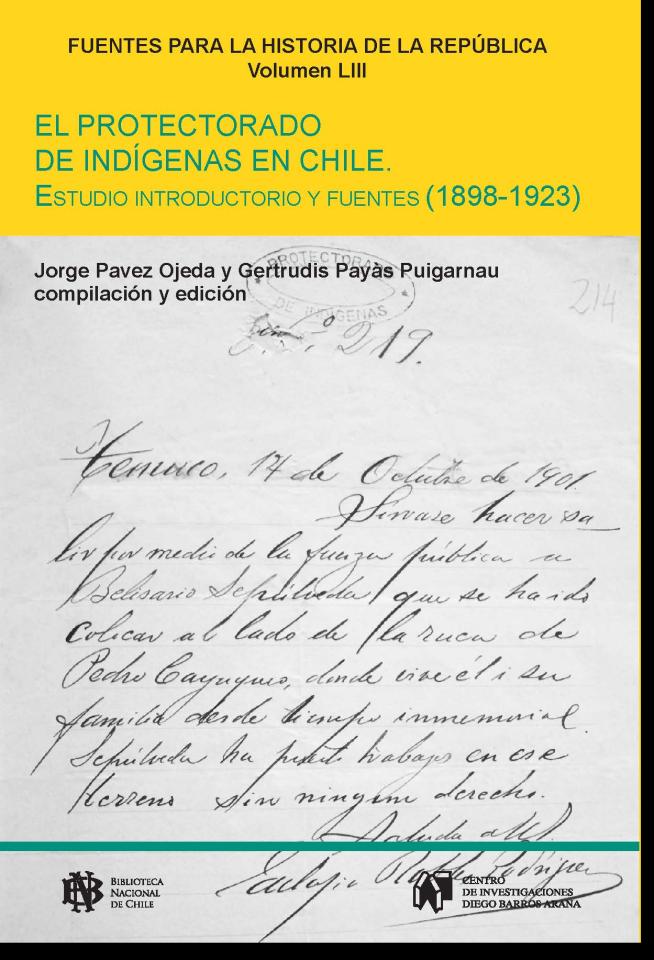 FUENTES PARA LA HISTORIA DE LA REPÚBLICA
Volumen LIII
EL PROTECTORADO
DE INDÍGENAS EN CHILE.
ESTUDIO INTRODUCTORIO Y FUENTES (1898-1923)
Jorge Pavez Ojeda y Gertrudis Payàs Puigarnau
compilación y edición
PROTECTORADO
DE INDIGENAS
214
219.
Temuco, 14 de Octubre de 1901.
Sirvase hacer sa
lir por medio de la fuerza pública a
Belisario Sepúlveda que se ha ido
colocar al lado de la ruca de
Pedro Cayuqueo, donde vive él i su
familia desde tiempo inmemorial.
Sepúlveda ha puesto trabajos en ese
terreno sin ningun derecho.
Saluda a Ud.
Eulojio Robles Rodríguez
BIBLIOTECA
NACIONAL
DE CHILE
CENTRO
DE INVESTIGACIONES
DIEGO BARROS ARANA